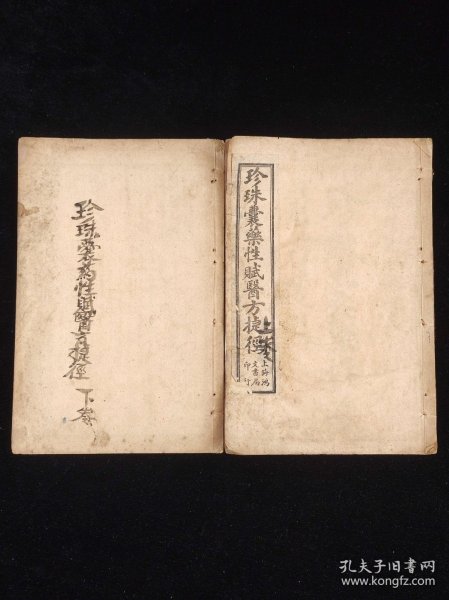 珍珠囊藥性賦醫方捷徑
上卷
上海鴻
文書局
印行
珍珠囊藥性賦醫方捷徑 下卷
孔夫子旧书网
www.kongfz.com